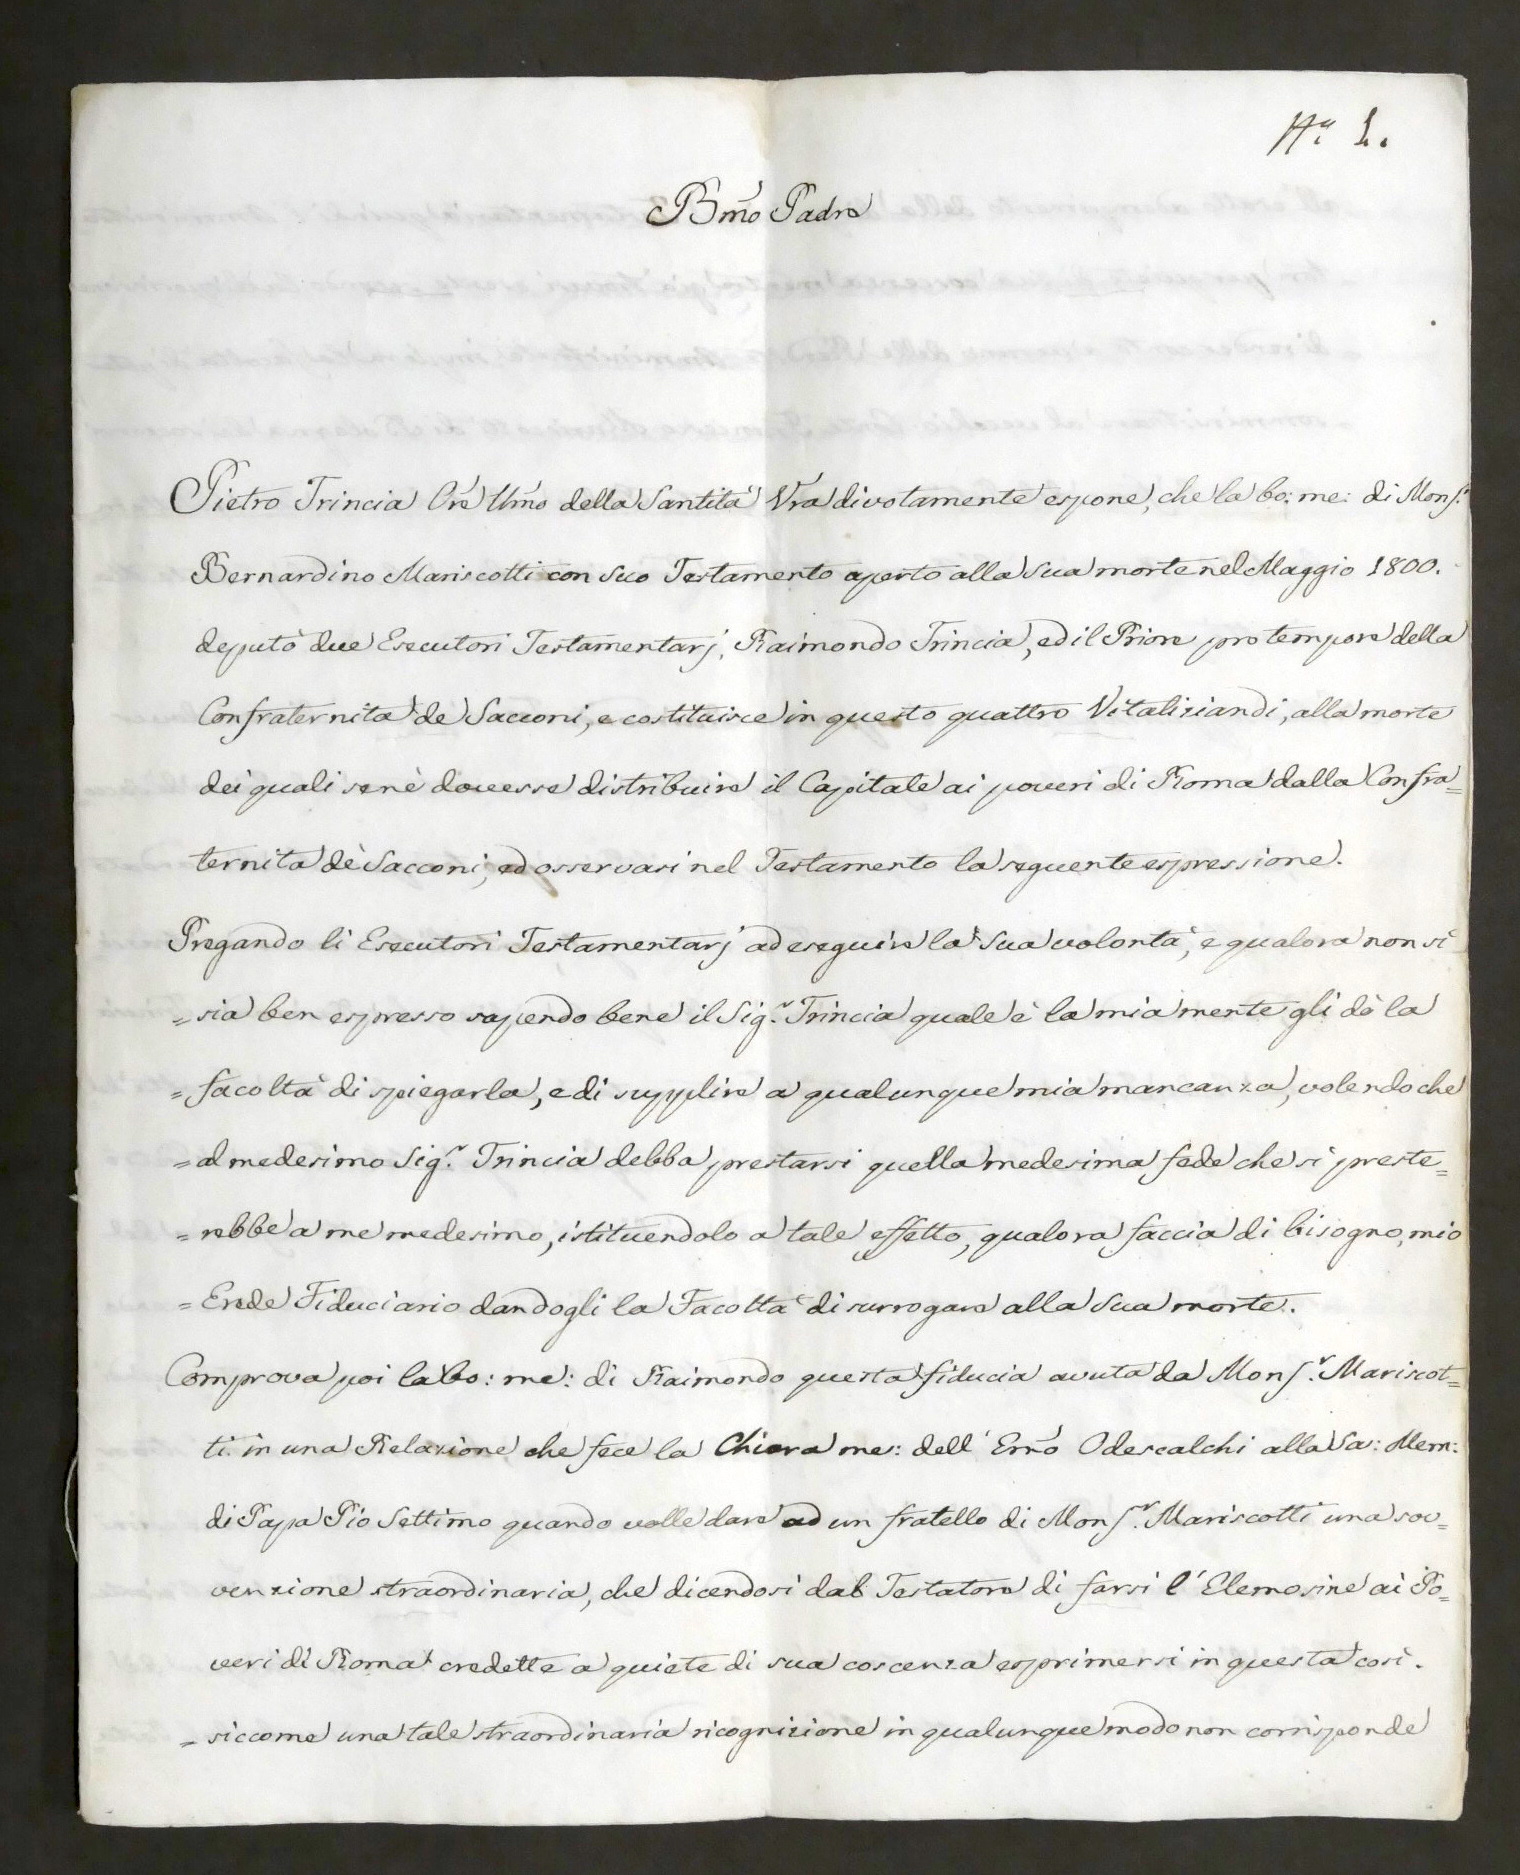 N.º 1.
Bm̃o Padre
Pietro Trincia Ore Um̃o della Santità Vra divotamente espone, che la bo: me: di Monsr.
Bernardino Mariscotti con suo Testamento aperto alla sua morte nel Maggio 1800.
deputò due Esecutori Testamentarj, Raimondo Trincia, ed il Priore pro tempore della
Confraternita de Sacconi, e costituisce in questo quattro Vitaliziandi, alla morte
dei quali senè dovesse distribuire il Capitale ai poveri di Roma dalla Confra=
ternita dè Sacconi, ed osservasi nel Testamento la seguente espressione.
Pregando li Esecutori Testamentarj ad eseguire la sua volontà, e qualora non si
= sia ben espresso sapendo bene il Sigr. Trincia quale è la mia mente gli dò la
= facoltà di spiegarla, e di supplire a qualunque mia mancanza, volendo che
= al medesimo Sigr. Trincia debba prestarsi quella medesima fede che si preste=
= rebbe a me medesimo, istituendolo a tale effetto, qualora faccia di bisogno, mio
= Erede Fiduciario dandogli la Facoltà di surrogare alla sua morte.
Comprova poi la bo: me: di Raimondo questa fiducia avuta da Monsr. Mariscot=
ti in una Relazione che fece la Chiara me: dell' Em̃o Odescalchi alla Sa: Mem:
di Papa Pio Settimo quando volle dare ad un fratello di Monsr. Mariscotti una sov=
venzione straordinaria, che dicendosi dal Testatore di farsi l' Elemosine ai Po=
veri di Roma credette a quiete di sua coscenza esprimersi in questa così.
= siccome una tale straordinaria ricognizione in qualunque modo non corrisponde